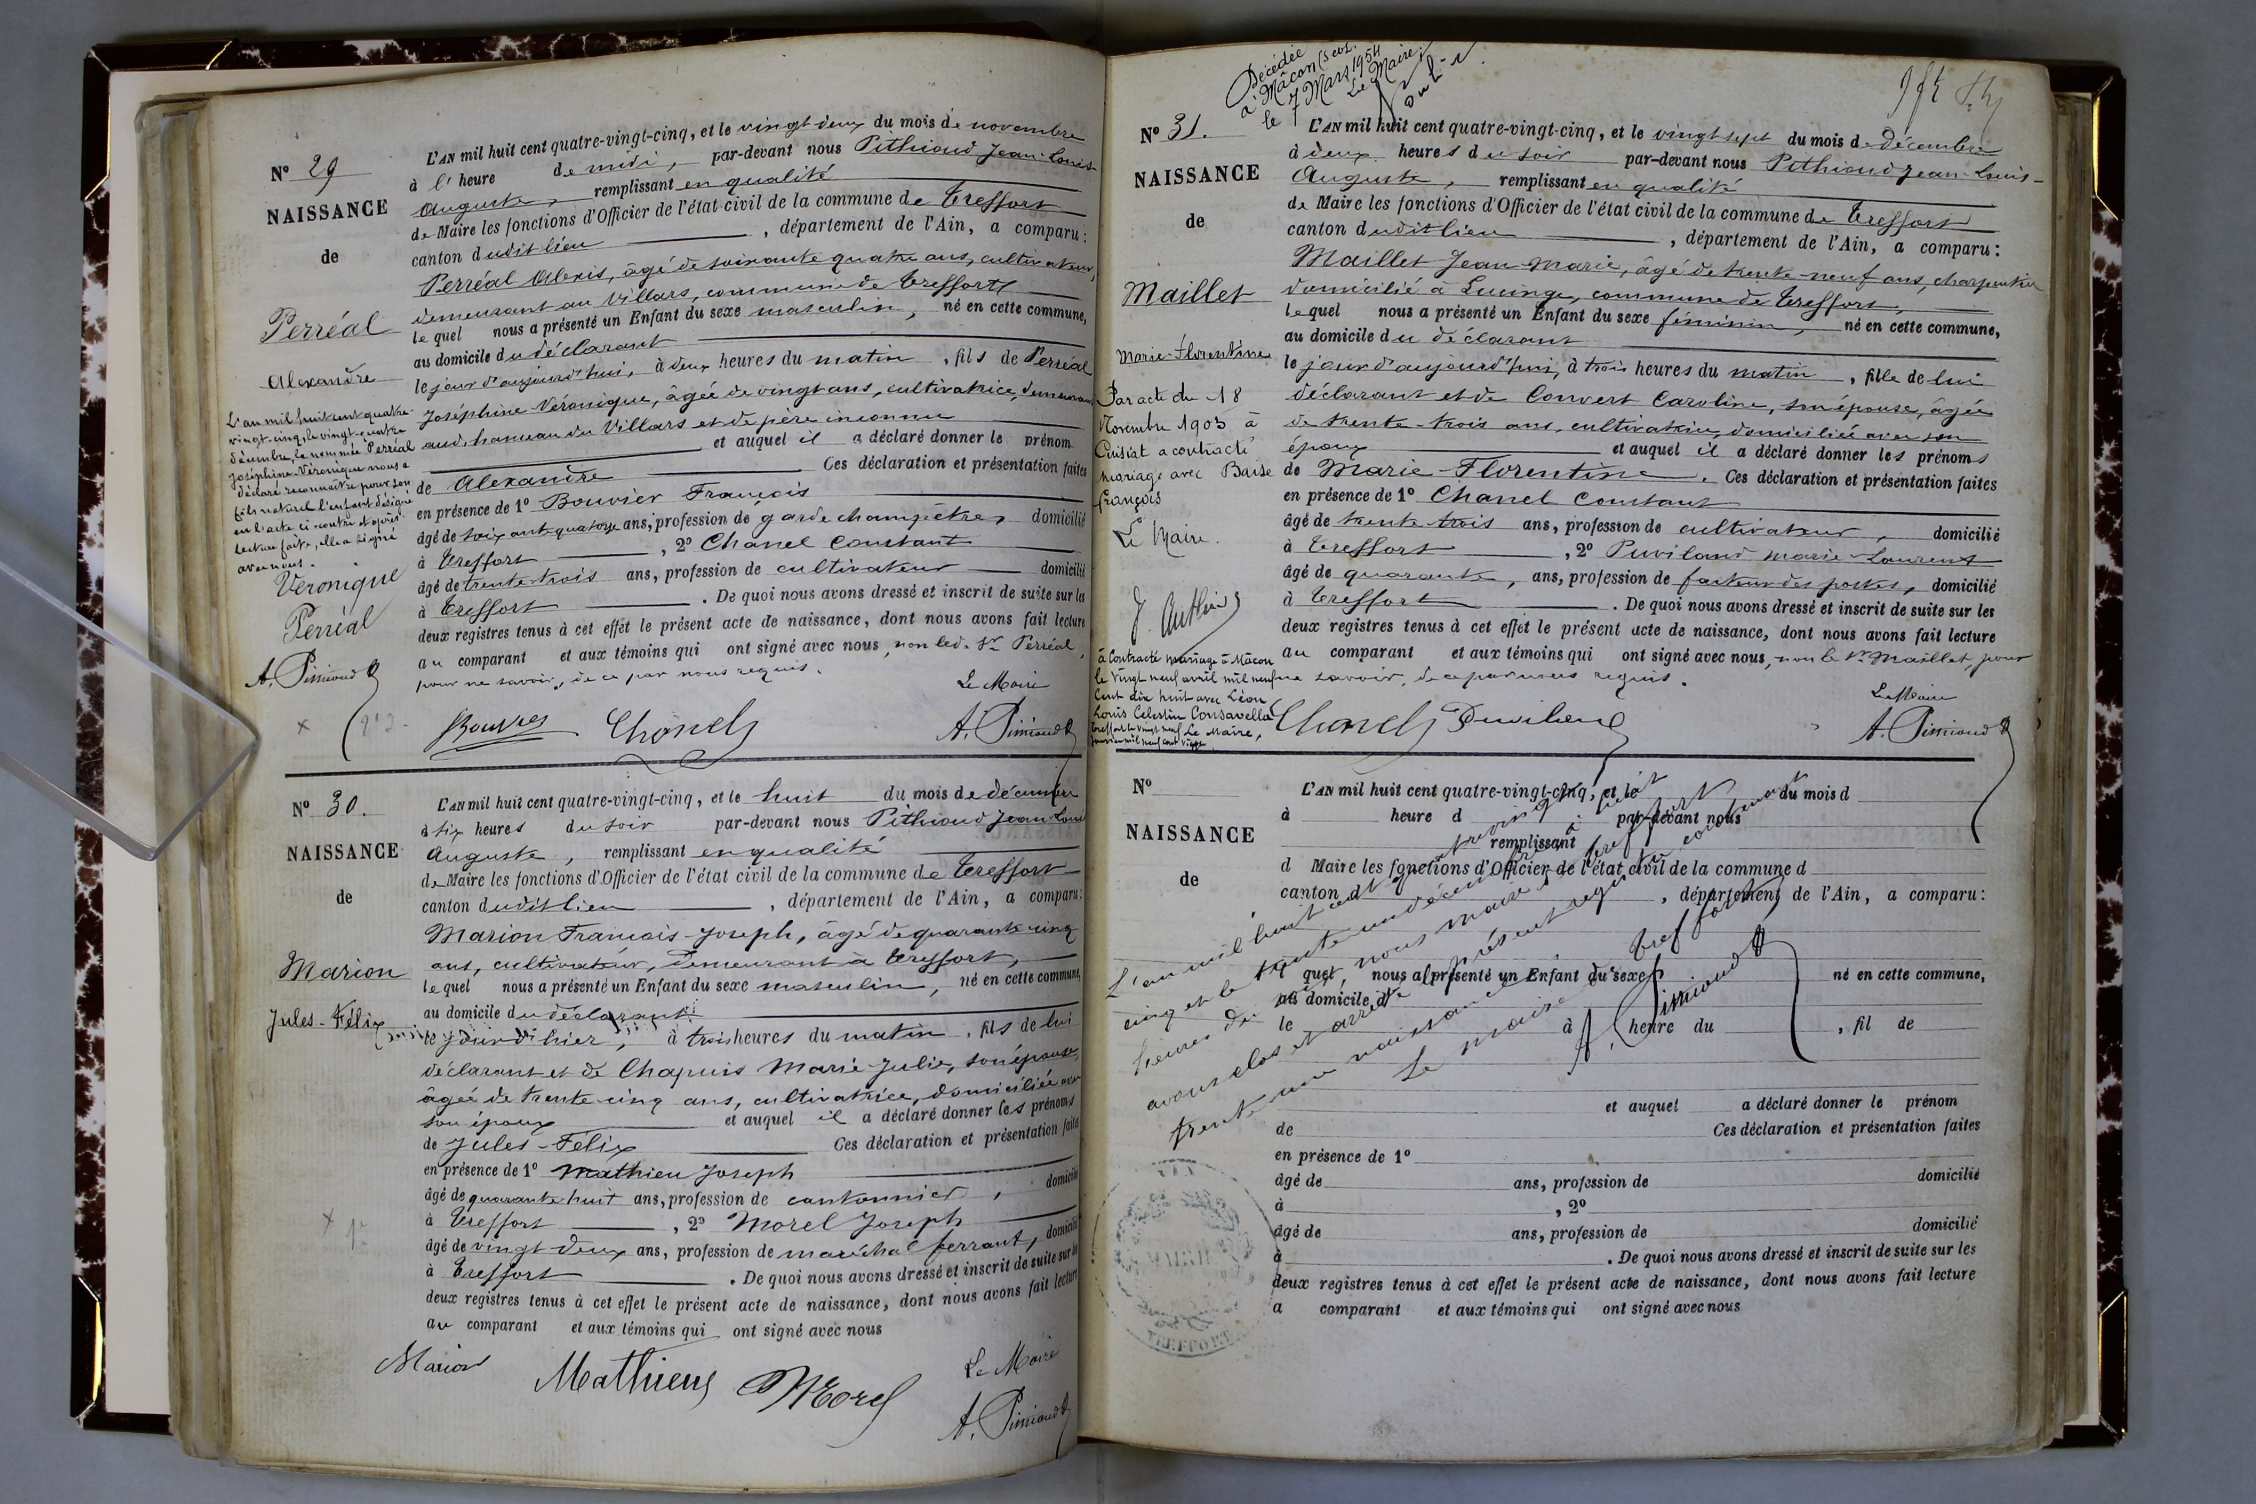 N° 29
NAISSANCE
de
Perréal
Alexandre
L'an mil huit cent quatre-
vingt-cinq, le vingt-quatre
décembre, la nommée Perréal
Joséphine-Véronique nous a
déclaré reconnaître pour son
fils naturel l'enfant désigné
en l'acte ci-contre et après
lecture faite, elle a signé
avec nous.
Veronique
Perréal
L'AN mil huit cent quatre-vingt-cinq, et le vingt-deux du mois de novembre
à l'heure de midi, par-devant nous Pithioud Jean-Louis-
Auguste, remplissant en qualité
de Maire les fonctions d'Officier de l'état civil de la commune de Treffort
canton dudit lieu, département de l'Ain, a comparu:
Perréal Alexis, âgé de soixante quatre ans, cultivateur,
demeurant au Villars, commune de Treffort
lequel nous a présenté un Enfant du sexe masculin, né en cette commune,
au domicile du déclarant
le jour d'aujourd'hui, à deux heures du matin, fils de Perréal
Joséphine-Véronique, âgée de vingt ans, cultivatrice, demeurant
aud. hameau du Villars et de père inconnu
et auquel il a déclaré donner le prénom
de Alexandre Ces déclaration et présentation faites
en présence de 1° Bouvier François
âgé de soixante quatorze ans, profession de garde champêtre, domicilié
à Treffort, 2° Chanel Constant
âgé de trente-trois ans, profession de cultivateur domicilié
à Treffort. De quoi nous avons dressé et inscrit de suite sur les
deux registres tenus à cet effet le présent acte de naissance, dont nous avons fait lecture
au comparant et aux témoins qui ont signé avec nous, non led. Sr Perréal,
pour ne savoir, de ce par nous requis.
Le Maire
Chanel
N° 30.
NAISSANCE
de
Marion
Jules-Félix
L'AN mil huit cent quatre-vingt-cinq, et le huit du mois de décembre
à six heures du soir par-devant nous Pithioud Jean-Louis
Auguste, remplissant en qualité
de Maire les fonctions d'Officier de l'état civil de la commune de Treffort
canton dudit lieu, département de l'Ain, a comparu:
Marion François-Joseph, âgé de quarante-cinq
ans, cultivateur, demeurant à Treffort,
lequel nous a présenté un Enfant du sexe masculin, né en cette commune,
au domicile du déclarant
le jour d'hier, à trois heures du matin, fils de lui
déclarant et de Chapuis Marie-Julie, son épouse,
âgée de trente-cinq ans, cultivatrice, domiciliée avec
son époux et auquel il a déclaré donner les prénoms
de Jules-Félix Ces déclaration et présentation faites
en présence de 1° Mathieu Joseph
âgé de quarante-huit ans, profession de cantonnier, domicilié
à Treffort, 2° Morel Joseph
âgé de vingt-deux ans, profession de maréchal ferrant, domicilié
à Treffort. De quoi nous avons dressé et inscrit de suite sur les
deux registres tenus à cet effet le présent acte de naissance, dont nous avons fait lecture
au comparant et aux témoins qui ont signé avec nous
Marion Mathieu Morel
Le Maire
Décédée
à Mâcon
le 7 Mars 1954
Le Maire
N° 31.
NAISSANCE
de
Maillet
Marie-Florentine
Par acte du 18
Novembre 1903 à
Cuisiat a contracté
mariage avec
François
Le Maire.
à Contracté mariage à Mâcon
le vingt neuf avril mil neuf
cent dix huit avec Léon
Louis Celestin
Le Maire,
L'AN mil huit cent quatre-vingt-cinq, et le vingt-sept du mois de décembre
à deux heures du soir par-devant nous Pithioud Jean-Louis-
Auguste, remplissant en qualité
de Maire les fonctions d'Officier de l'état civil de la commune de Treffort
canton dudit lieu, département de l'Ain, a comparu:
Maillet Jean-Marie, âgé de trente-neuf ans, charpentier
domicilié à Lucinge, commune de Treffort,
lequel nous a présenté un Enfant du sexe féminin, né en cette commune,
au domicile du déclarant
le jour d'aujourd'hui, à trois heures du matin, fille de lui
déclarant et de Convert Caroline, son épouse, âgée
de trente-trois ans, cultivatrice, domiciliée avec son
époux et auquel il a déclaré donner les prénoms
de Marie-Florentine. Ces déclaration et présentation faites
en présence de 1° Chanel Constant
âgé de trente-trois ans, profession de cultivateur, domicilié
à Treffort, 2° Puviland Marie-Laurent
âgé de quarante, ans, profession de facteur des postes, domicilié
à Treffort. De quoi nous avons dressé et inscrit de suite sur les
deux registres tenus à cet effet le présent acte de naissance, dont nous avons fait lecture
au comparant et aux témoins qui ont signé avec nous, non le Sr Maillet, pour
ne savoir, de ce par nous requis.
Le Maire
Chanel Puviland
N°
NAISSANCE
de
L'AN mil huit cent quatre-vingt-cinq, et le du mois d
à heure d par-devant nous
remplissant
d Maire les fonctions d'Officier de l'état civil de la commune d
canton d, département de l'Ain, a comparu:
quel nous a présenté un Enfant du sexe né en cette commune,
au domicile d
le à heure du, fil de
et auquel a déclaré donner le prénom
de Ces déclaration et présentation faites
en présence de 1°
âgé de ans, profession de domicilié
à, 2°
âgé de ans, profession de domicilié
à. De quoi nous avons dressé et inscrit de suite sur les
deux registres tenus à cet effet le présent acte de naissance, dont nous avons fait lecture
a comparant et aux témoins qui ont signé avec nous
L'an mil huit cent quatre vingt
cinq et le trente un décembre à huit
heures du soir, nous maire de Treffort
avons clos et arrêté le présent registre contenant
trente une naissances. Treffort
Le maire
TREFFORT